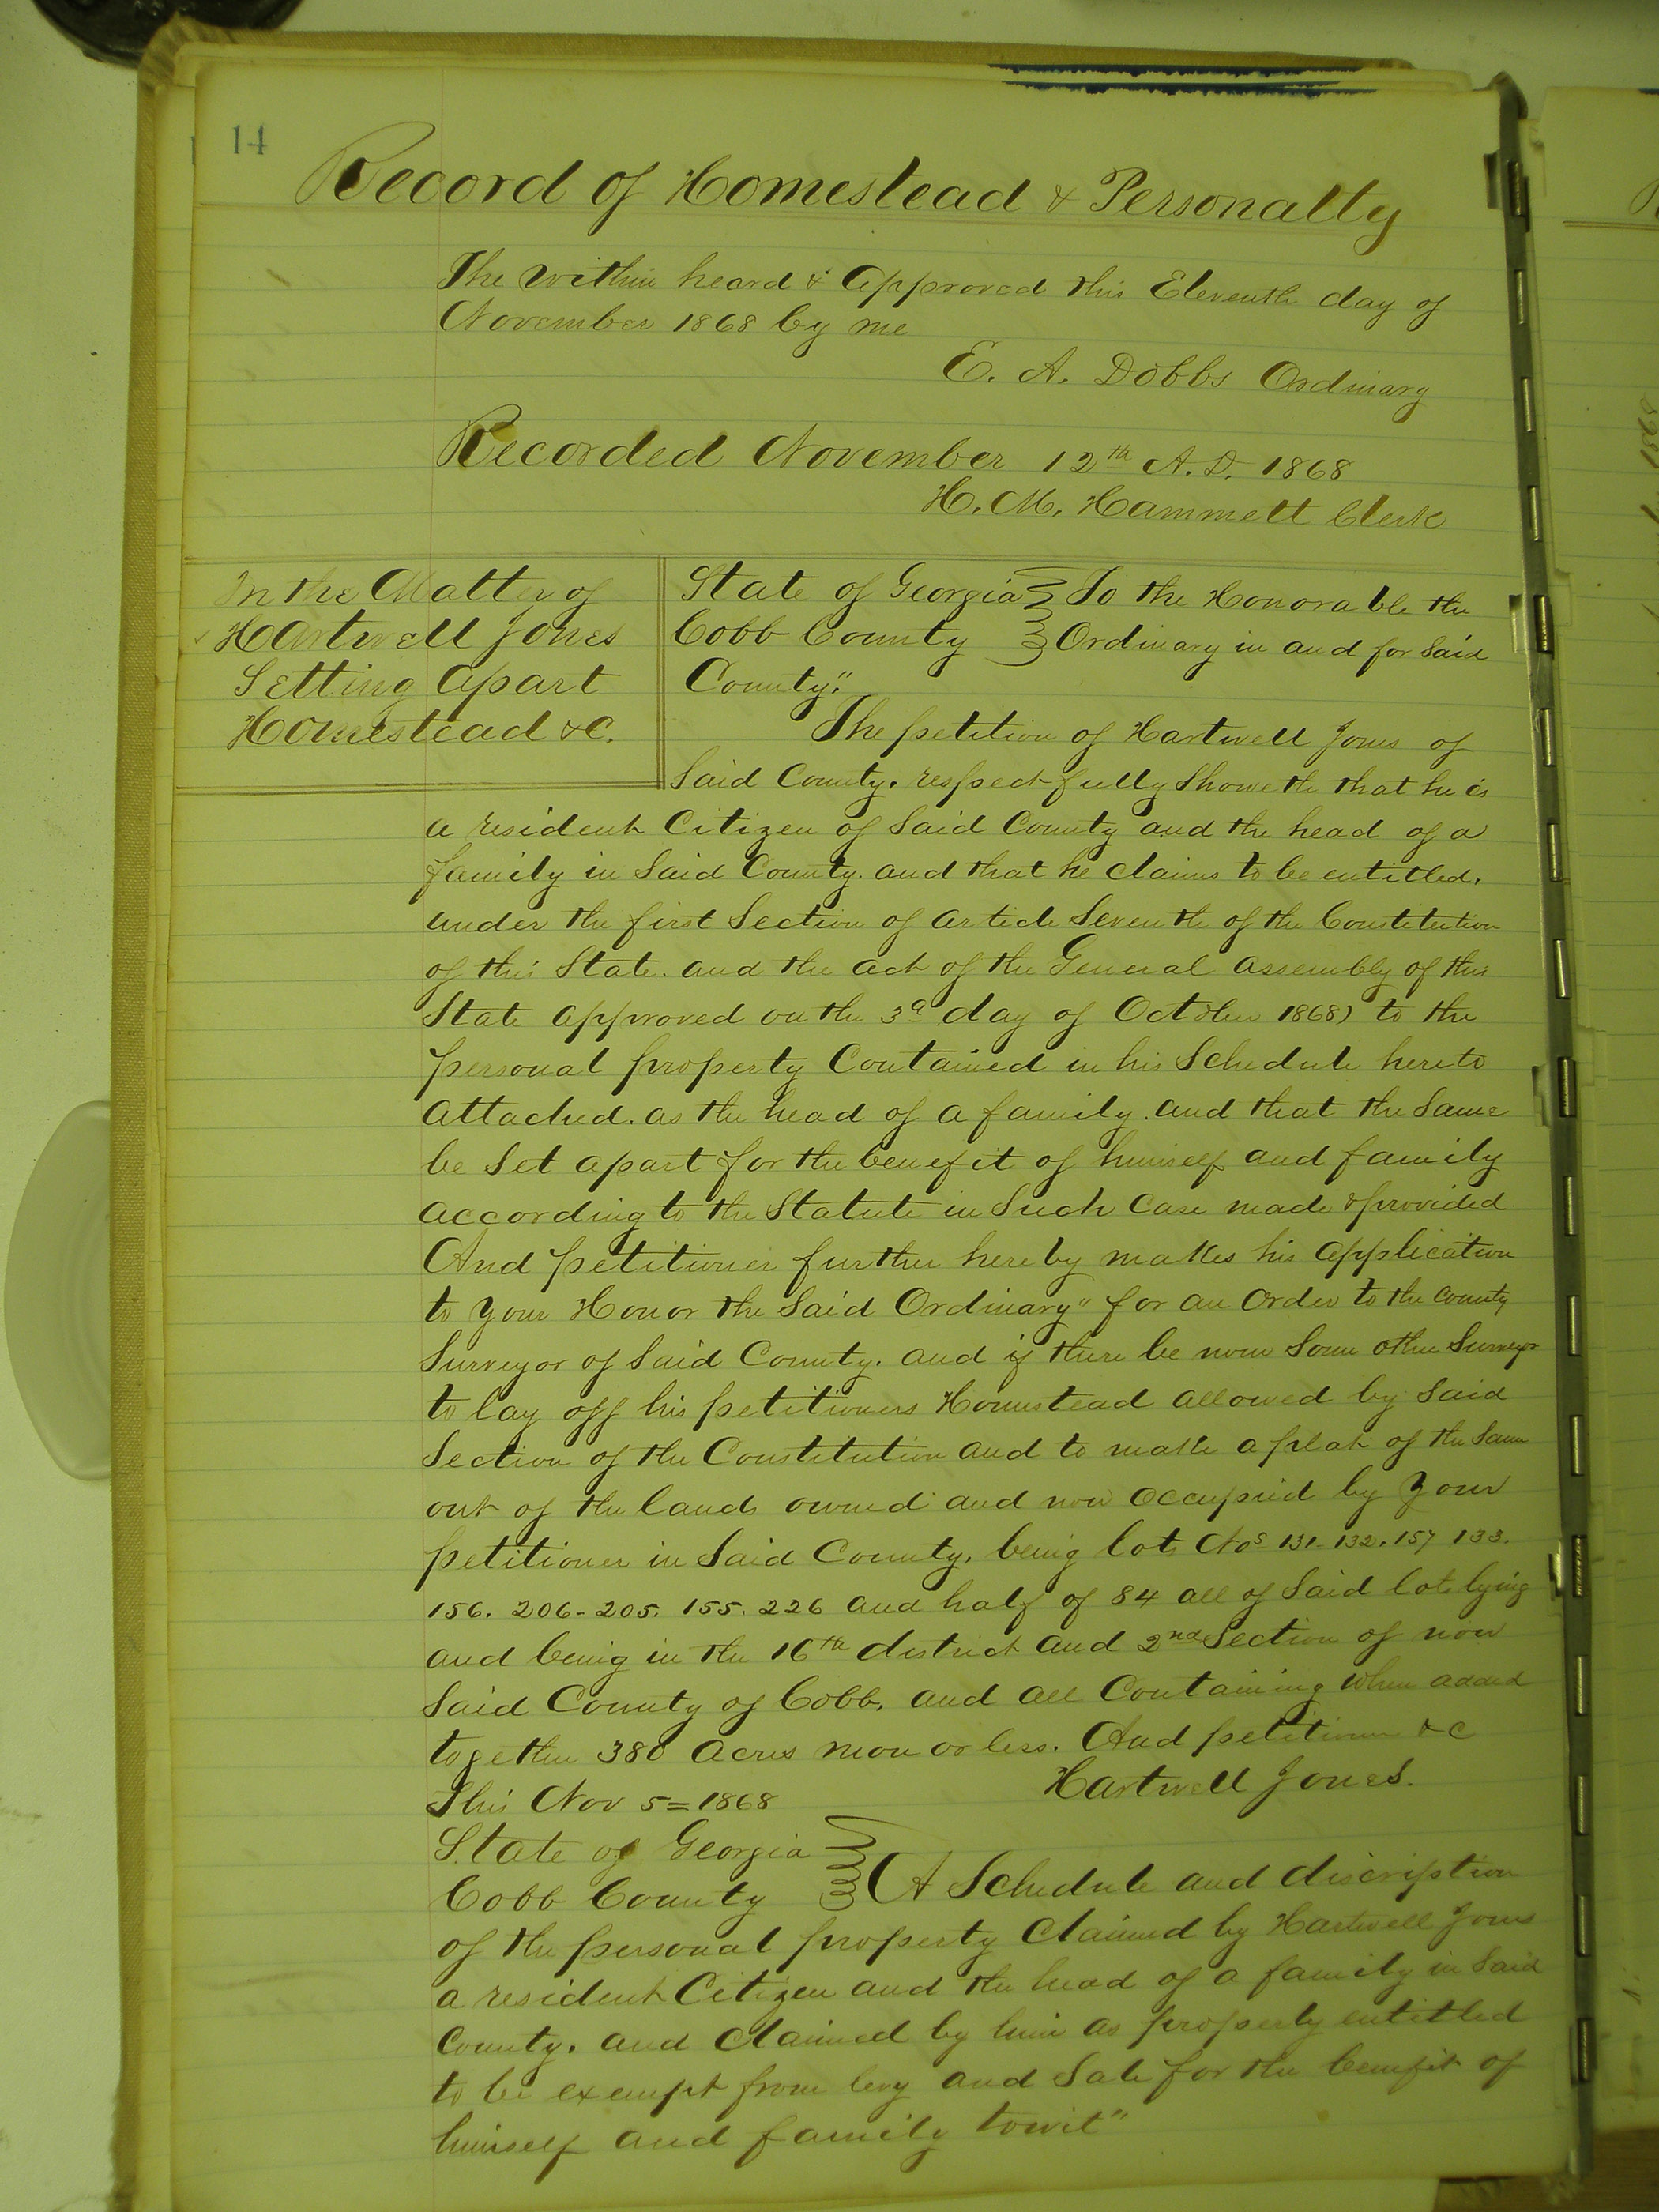 14
Record of Homestead & Personalty
The within heard & approved this Eleventh day of
November 1868 by me
E. A. Dobbs Ordinary
Recorded November 12th A.D. 1868
H. M. Hammett Clerk
In the Matter of
Hartwell Jones
Setting apart
Homestead &C.
State of Georgia } To the Honorable the
Cobb County } Ordinary in and for Said
County"
The petition of Hartwell Jones of
Said County. respectfully Showeth that he is
a resident Citizen of Said County and the head of a
family in Said County. and that he claims to be entitled.
under the first Section of article Seventh of the Constitution
of this State. and the act of the General assembly of this
State approved on the 3d day of October 1868) to the
personal property Contained in his Schedule hereto
attached. as the head of a family. and that the Same
be Set apart for the benefit of himself and family
according to the Statute in Such Case made & provided
And petitioner further hereby makes his application
to your Honor the Said Ordinary" for an Order to the County
Surveyor of Said County. and if there be none Some other Surveyor
to lay off his petitioners Homestead allowed by Said
Section of the Constitution and to make a plat of the Same
out of the lands owned and now occupied by your
petitioner in Said County, being lots Nos 131-132. 157 133.
156. 206-205. 155. 226 and half of 84 all of Said lots lying
and being in the 16th district and 2nd Section of now
Said County of Cobb, and all Containing when added
together 380 acres more or less. And petitioner &c
Hartwell Jones.
This Nov 5=1868
State of Georgia }
Cobb County } A Schedule and discription
of the personal property Claimed by Hartwell Jones
a resident Citizen and the head of a family in Said
County. and Claimed by him as property entitled
to be exempt from levy and Sale for the benefit of
himself and family towit"